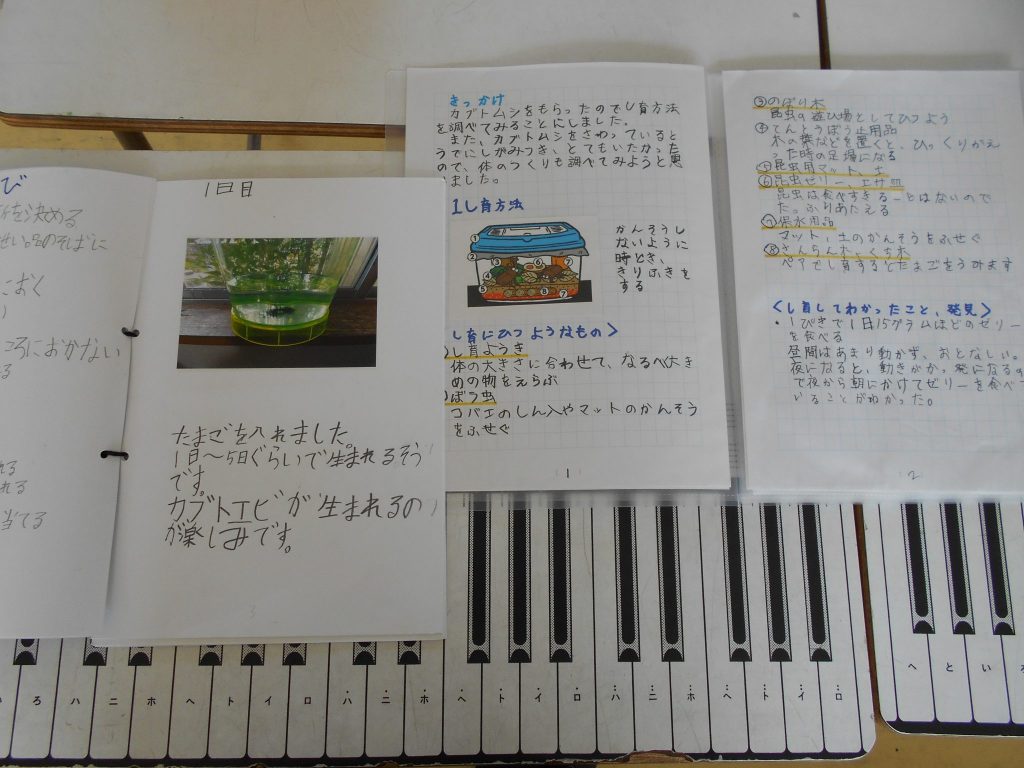 び
を決める
のそばに
におく
ころにおかない
る
れる
れる
当てる
1日目
たまごを入れました。
1日〜5日ぐらいで生まれるそう
です。
カブトエビが生まれるの
が楽しみです。
3
きっかけ
カブトムシをもらったのでし育方法
を調べてみることにしました。
また、カブトムシをさわっていると
うでにしがみつき、とてもいたかった
ので、体のつくりも調べてみようと思い
ました。
1し育方法
かんそうし
ないように
時どき、
きりふきを
する
し育にひつようなもの>
し育ようき
体の大きさに合わせて、なるべく大き
めの物をえらぶ
ぼう虫
コバエのしん入やマットのかんそう
をふせぐ
1
③のぼり木
昆虫の遊び場としてひつよう
④てんとうぼう止用品
木の葉などを置くと、ひっくりかえ
った時の足場になる
⑤昆虫用マット、土
⑥昆虫ゼリー、エサ皿
昆虫は食べすぎることはないので
たっぷりあたえる
⑦保水用品
マット、土のかんそうをふせぐ
⑧さんらん木、くち木
ペアでし育するとたまごをうみます
<し育してわかったこと、発見>
・1ぴきで1日15グラムほどのゼリー
を食べる
昼間はあまり動かず、おとなしい。
夜になると、動きがかっ発になるの
で夜から朝にかけてゼリーを食べて
いることがわかった。
2
ろ ハ ニ ホ ヘ ト イ ロ ハ ニ ホ ヘ ト イ ロ ハ ニ ホ ヘ ト イ ロ
へ と い ろ